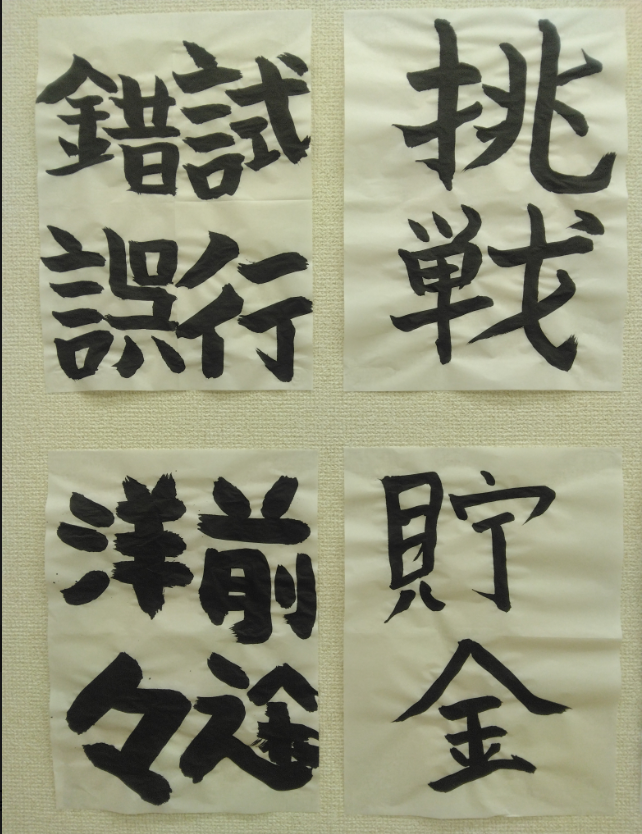 挑戦
試行
錯誤
貯金
前途
洋々